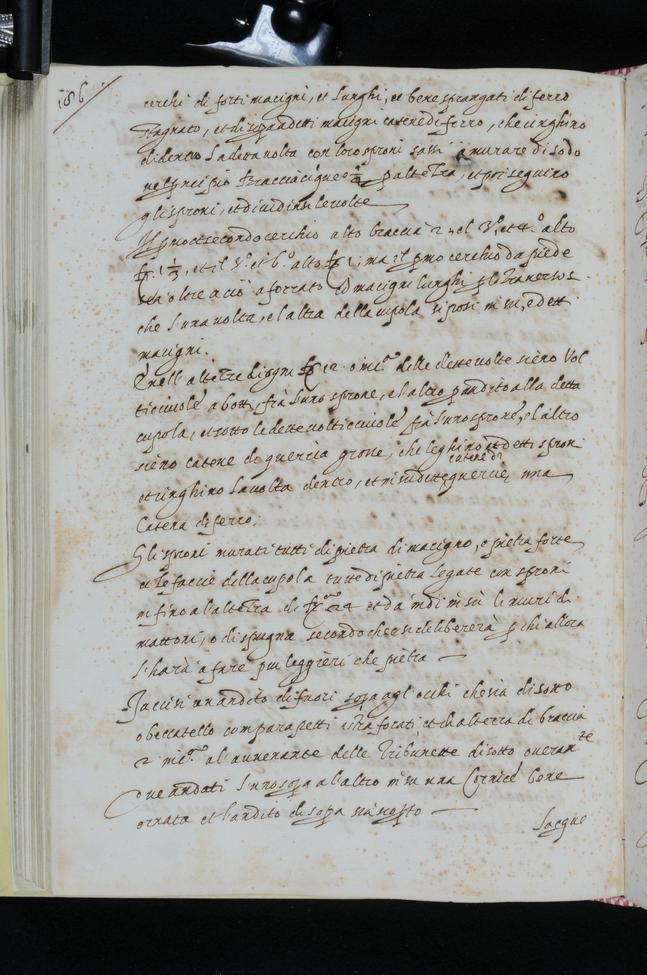 186
cerchi di forti macigni, et lunghi, et bene sprangati di ferro
stagnato, et di sopra a detti macigni catene di ferro, che cinghino
di dentro la detta volta con loro sproni murare di sodo
nel principio braccia cinque e ½ p altezza, et poi seguino
gli sproni, et dividinsi le volte
Il pmo et secondo cerchio alto braccia 2, el 3º, et 4º alto
br 1 ⅓, et il 5º et 6º alto br 1; ma il pmo cerchio da piede
sia oltre a ciò aforzato macigni lunghi p lo traverso
che l'una volta, e l'altra della cupola si posi in su, e detti
macigni.
E nell altezze di ogni br 12 o incª delle dette volte sieno vol
ticciuole a botti frà l'uno sprone, e l'altro p andito alla detta
cupola, et sotto le dette volticciuole frà l'uno sprone, e l'altro
sieno catene di quercia grosse, che leghino et detti sproni
catene di
et cinghino la volta dentro, et in su dette quercie una
Catena di ferro.
Gli sproni murati tutti di pietra di macigno, e pietra forte
et le faccie della cupola tutte di pietra legate con sproni
in fino a l'altezza di br 24 et da indi in sù li muri di
mattoni, o di spugna secondo che se diliberera p chi allora
l'harà a fare piu leggieri che pietra
Facciasi un andito di fuori sopra agl'occhi che sia di sotto
o beccatello cum parapetti straforati, et di altezza di braccia
2 incª al avvenante delle Tribunette di sotto overan
te
Due anditi l'uno sopra a l'altro in su una Cornice bene
ornata et l'andito di sopra sia scopto
L'acque